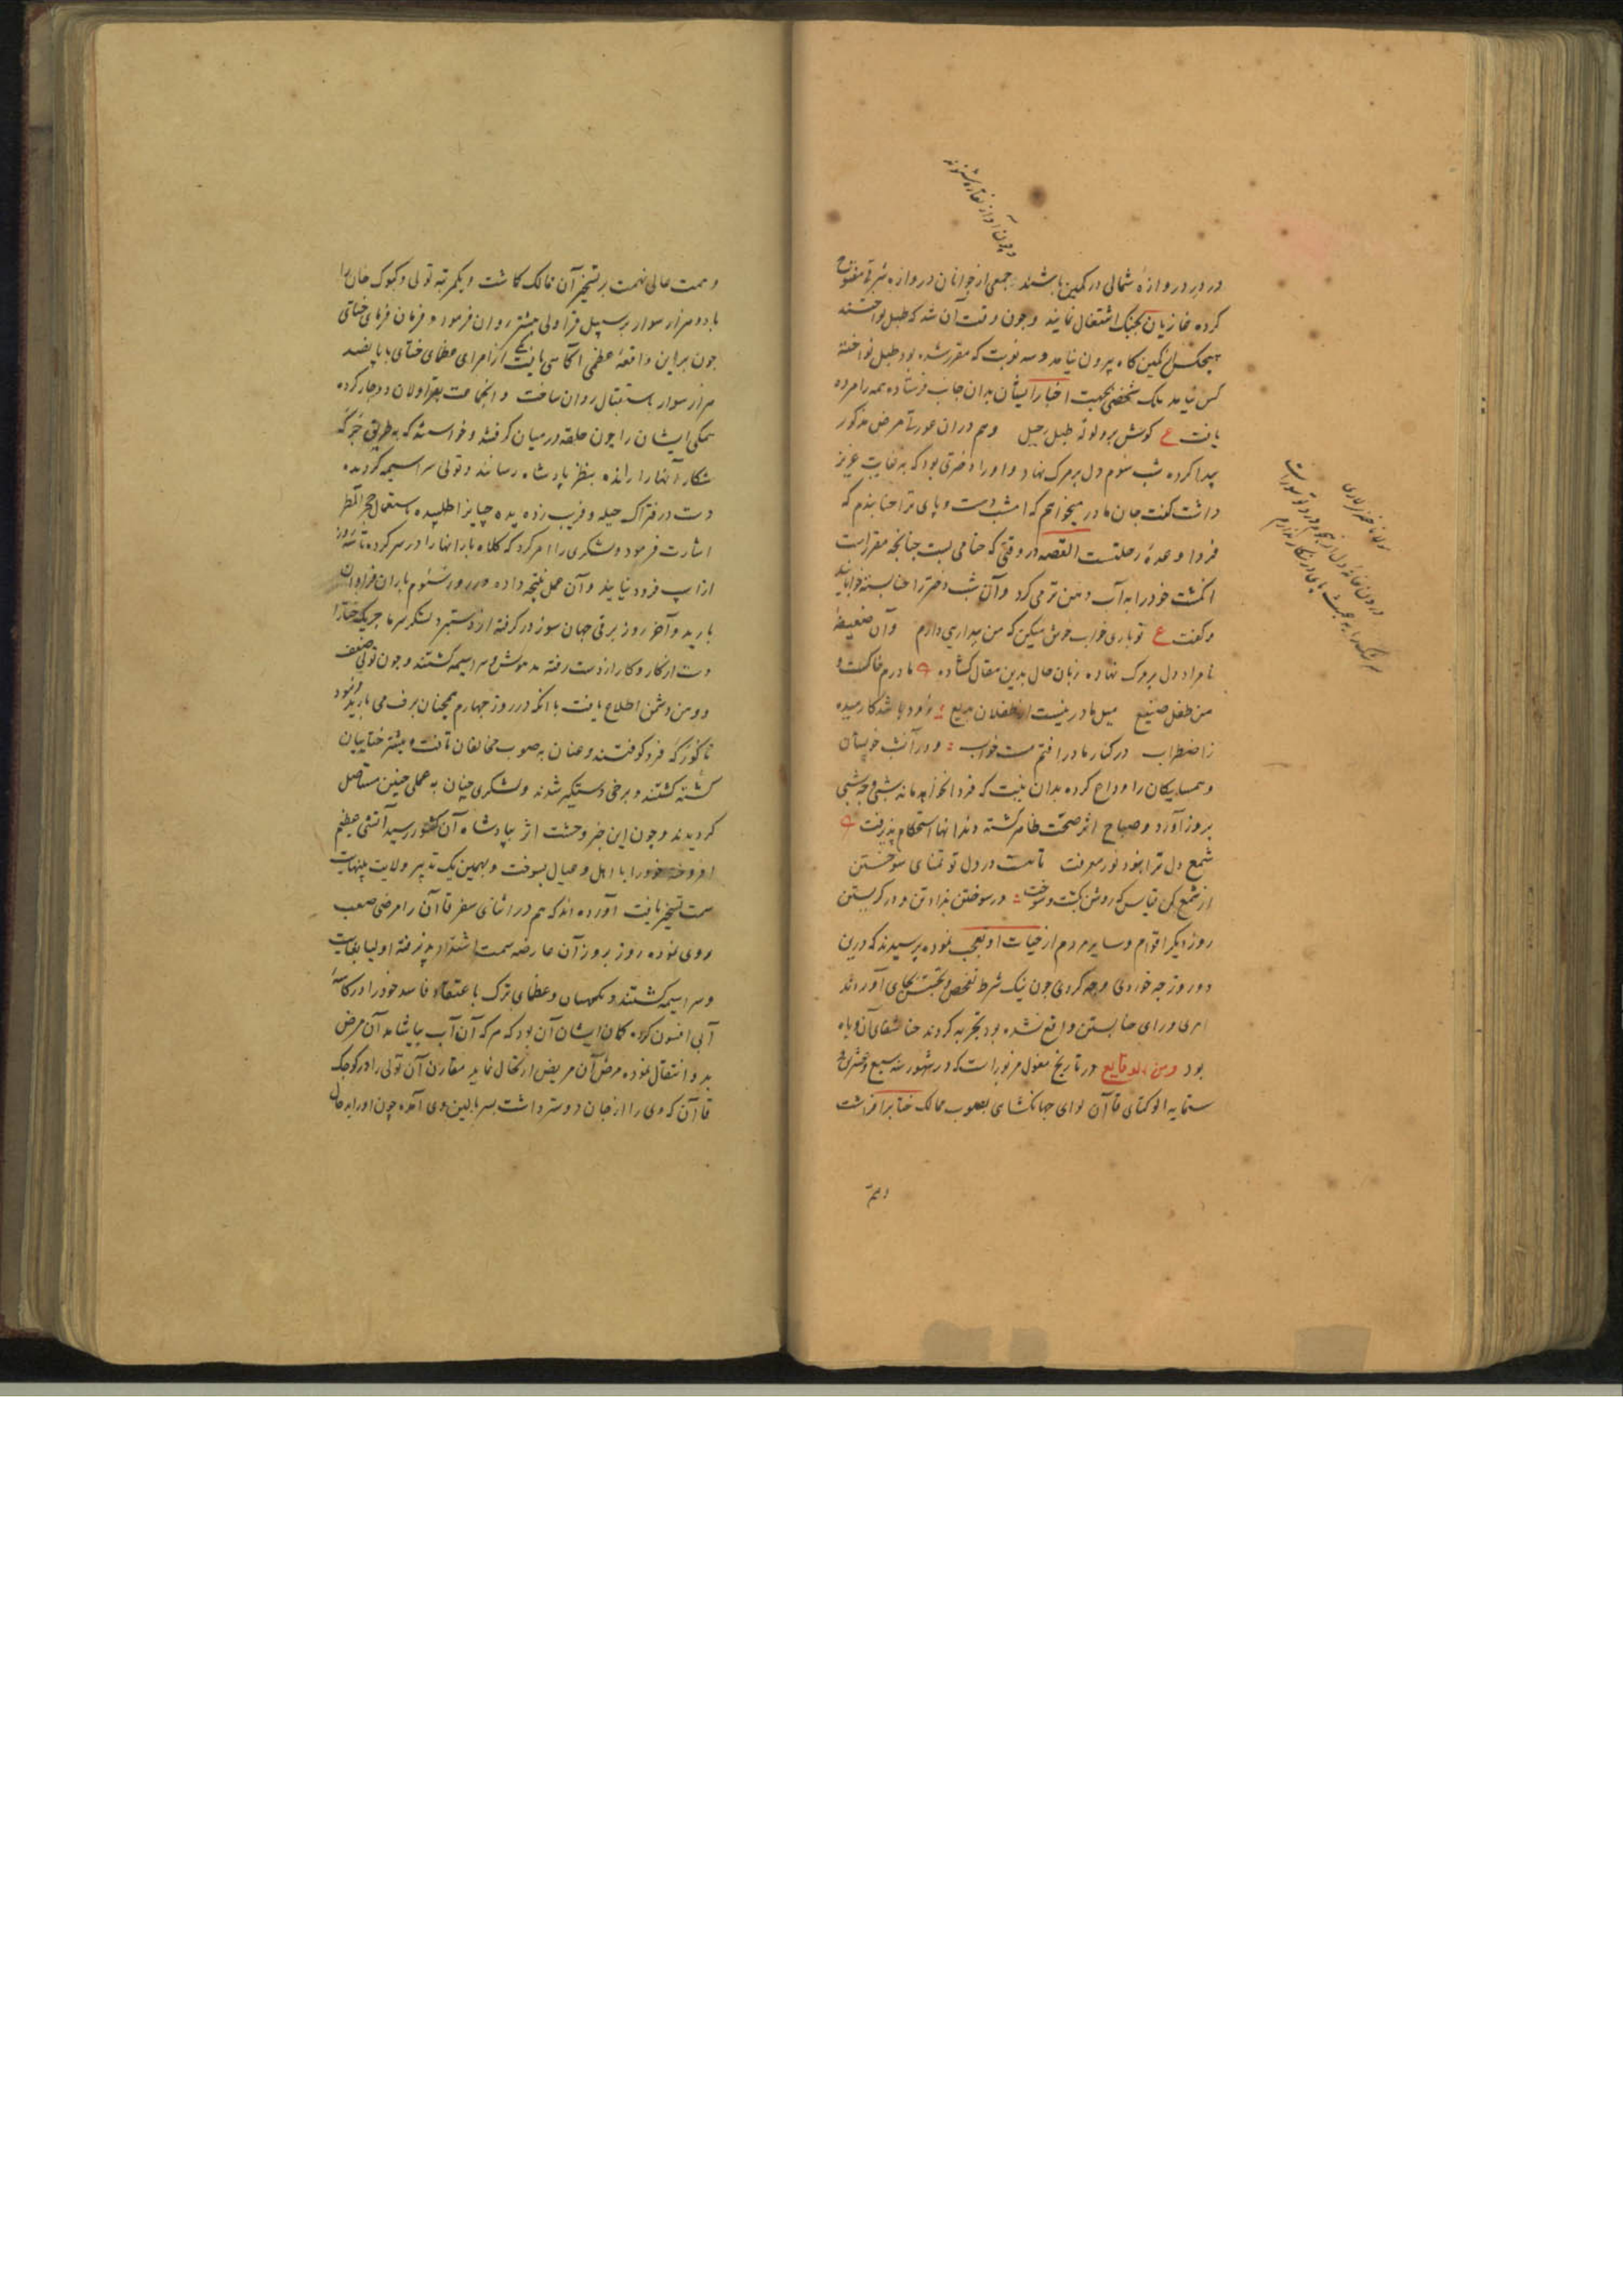 و چون آواز نقاره شنوند
در در دروازهٔ شمالی در کمین باشند جمعی از جوانان دروازه شرقی مفتوح
کرده غازیان بجنک اشتغال نمایند و چون وقت آن شد که طبل نواختند
هیچکس از کمین کاه بیرون نیامد و سه نوبت که مقرر شده بود طبل نواخته
کس نیامد ملک شخصی بجهت اخبار ایشان بدان جانب فرستاده همه را مرده
یافت ع کوش بر ولوله طبل رحیل وهم دران عورتی مرض مذکور
پیدا کرده شب سوم دل بر مرک نهاد و او را دختری بود که به غایت عزیز
داشت کفت جان مادر میخواهم که امشب دست و پای ترا حنا بندم که
فردا وعدهٔ رحلتست القصه در وقتی که حنا می بست چنانچه مقررست
انکشت خود را به آب دهن تر می کرد و آن شب دختر را حنا بسته خوابانید
و کفت ع تو باری خواب خوش میکن که من بیداریی دارم و آن ضعیفه
نامراد دل بر مرک نهاده زبان حال بدین مقال کشاده مادرم خاکست و
من طفل صنیع میل مادر نیست از طفلان بدیع
ز اضطراب در کنار مادر افتم مست خواب و در آنشب خویشان
و همسایکان را وداع کرده بدان نیت که فردا نخواهد ماند شبی و چه شبی
بروز آورد و صباح اثر صحت ظاهر کشته دندانها استحکام پذیرفت
شمع دل ترا نبود نور معرفت تا هست در دل تو تمنای سوختن
از شمع کن قیاس که روشن بکشت و سوخت در سوختن بزادن و در کریستن
روز دیکر اقوام و سایر مردم از حیات او تعجب نموده پرسیدند که درین
دو روز چه خوردی و چه کردی چون نیک شرط تفحص و تجسس بجای آوردند
امری ورای حنا بستن واقع نشده بود تجربه کردند حنا شفای آن وباء
بود ومن الوقایع در تاریخ مغول مزبور است که در شهور سنه سبع و عشرین و
ستمایه اوکتای قاآن لوای جهانکشای بصوب ممالک ختا برافراشت
وهمت
مولانا خضر لاری
درون خانهٔ دل از هجوم درد تو سوراست
و همت عالی نهمت بر تسخیر آن ممالک کماشت و یکمرتبه تولی و کیوک خان را
با دو هزار سوار بر سبیل قراولی پیشتر روان فرمود و فرمان فرمای ختای
چون بر این واقعهٔ عظمی آکاهی یافت یکی از امرای عظمای ختای با پانصد
هزار سوار باستقبال روان ساخت و انجماعت بقراولان دوچار کرده
همکی ایشان را چون حلقه در میان کرفته و خواسته که به طریق جرکه
شکار آنها را رانده بنظر پادشاه رسانند و تولی سراسیمه کردیده
دست در فتراک حیله و فریب زده یده چیانرا طلبیده باستعمال حجر المطر
اشارت فرمود و لشکری را امر کرد که کلاه بارانها را در سر کرده تا سه روز
از اسپ فرود نیایند و آن عمل نتیجه داده در روز سوم باران فراوان
بارید و آخر روز برقی جهان سوز در کرفته از دستبرد لشکر سرما چریک ختا را
دست از کار و کار از دست رفته مدهوش و سراسیمه کشتند و چون تولی ضعف
و وهن دشمن اطلاع یافت با انکه در روز چهارم همچنان برف می بارید فرمود
تا کورکه فرو کوفتند و عنان به صوب مخالفان تافت و بیشتر ختاییان
کشته کشتند و برخی دستکیر شدند و لشکری چنان به عملی چنین مستاصل
کردیدند و چون این خبر وحشت اثر بپادشاه آن کشور رسید آتشی عظیم
افروخته خود را با اهل و عیال بسوخت و بهمین یک تدبیر ولایت بینهایت
سمت تسخیر یافت آورده اند که هم در اثنای سفر قاآن را مرضی صعب
روی نموده روز بروز آن عارضه سمت اشتداد پذیرفته اولیا بغایت
و سراسیمه کشتند و کهنه و عظمای ترک با عتقاد فاسد خود را در کاسهٔ
آبی افسون کرد کمان ایشان آن بود که هر که آن آب بیاشامد آن مرض
بدو انتقال نموده مرض آن مریض ارتحال نماید مقارن آن تولی برادر کوچک
قاآن که وی را از جان دوستر داشت بسر بالین وی آمده چون او را بد حال